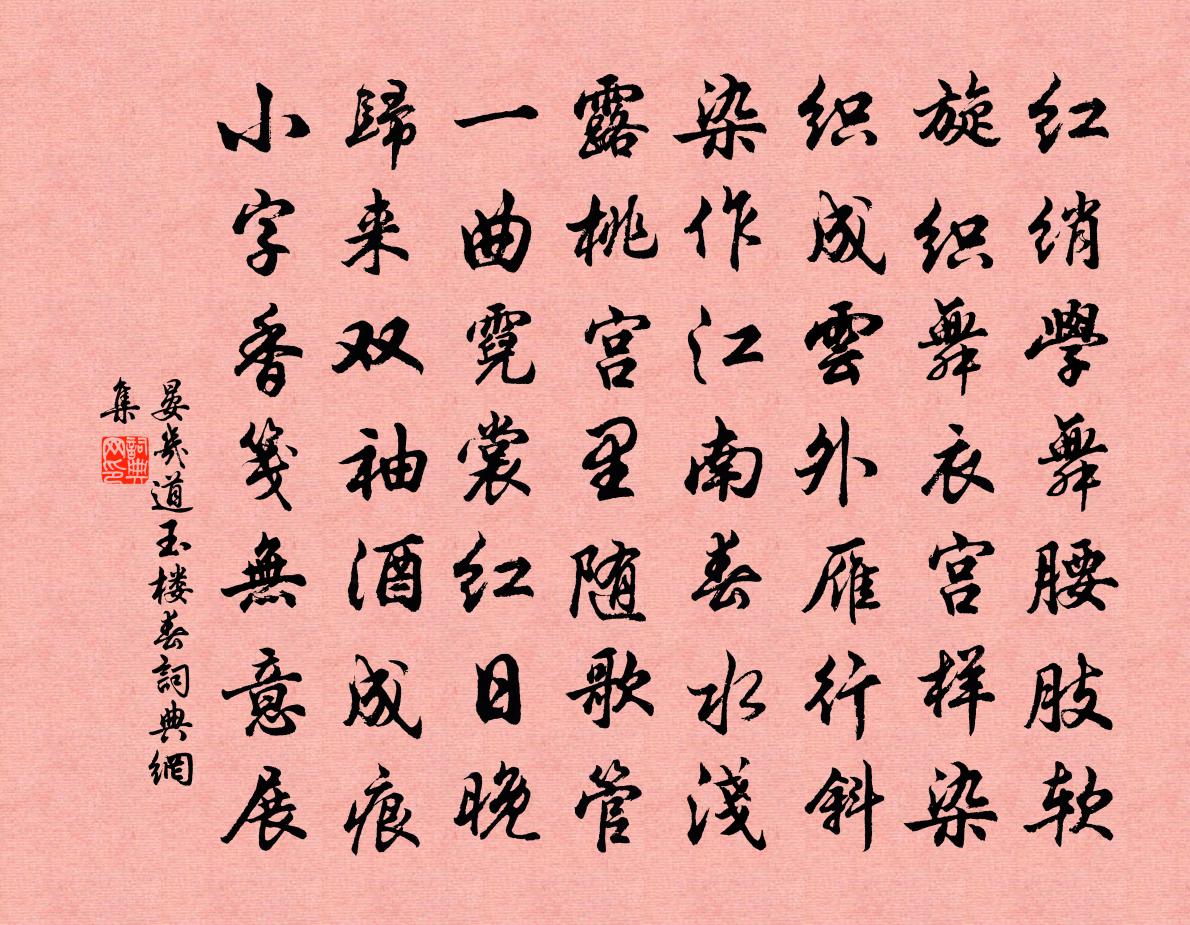 红绡學舞腰肢软
旋织舞衣宫样染
织成雲外雁行斜
染作江南春水淺
露桃宫里随歌管
一曲霓裳红日晚
歸来双袖酒成痕
小字香箋無意展
晏幾道玉楼春詞典網
集
詞典網印